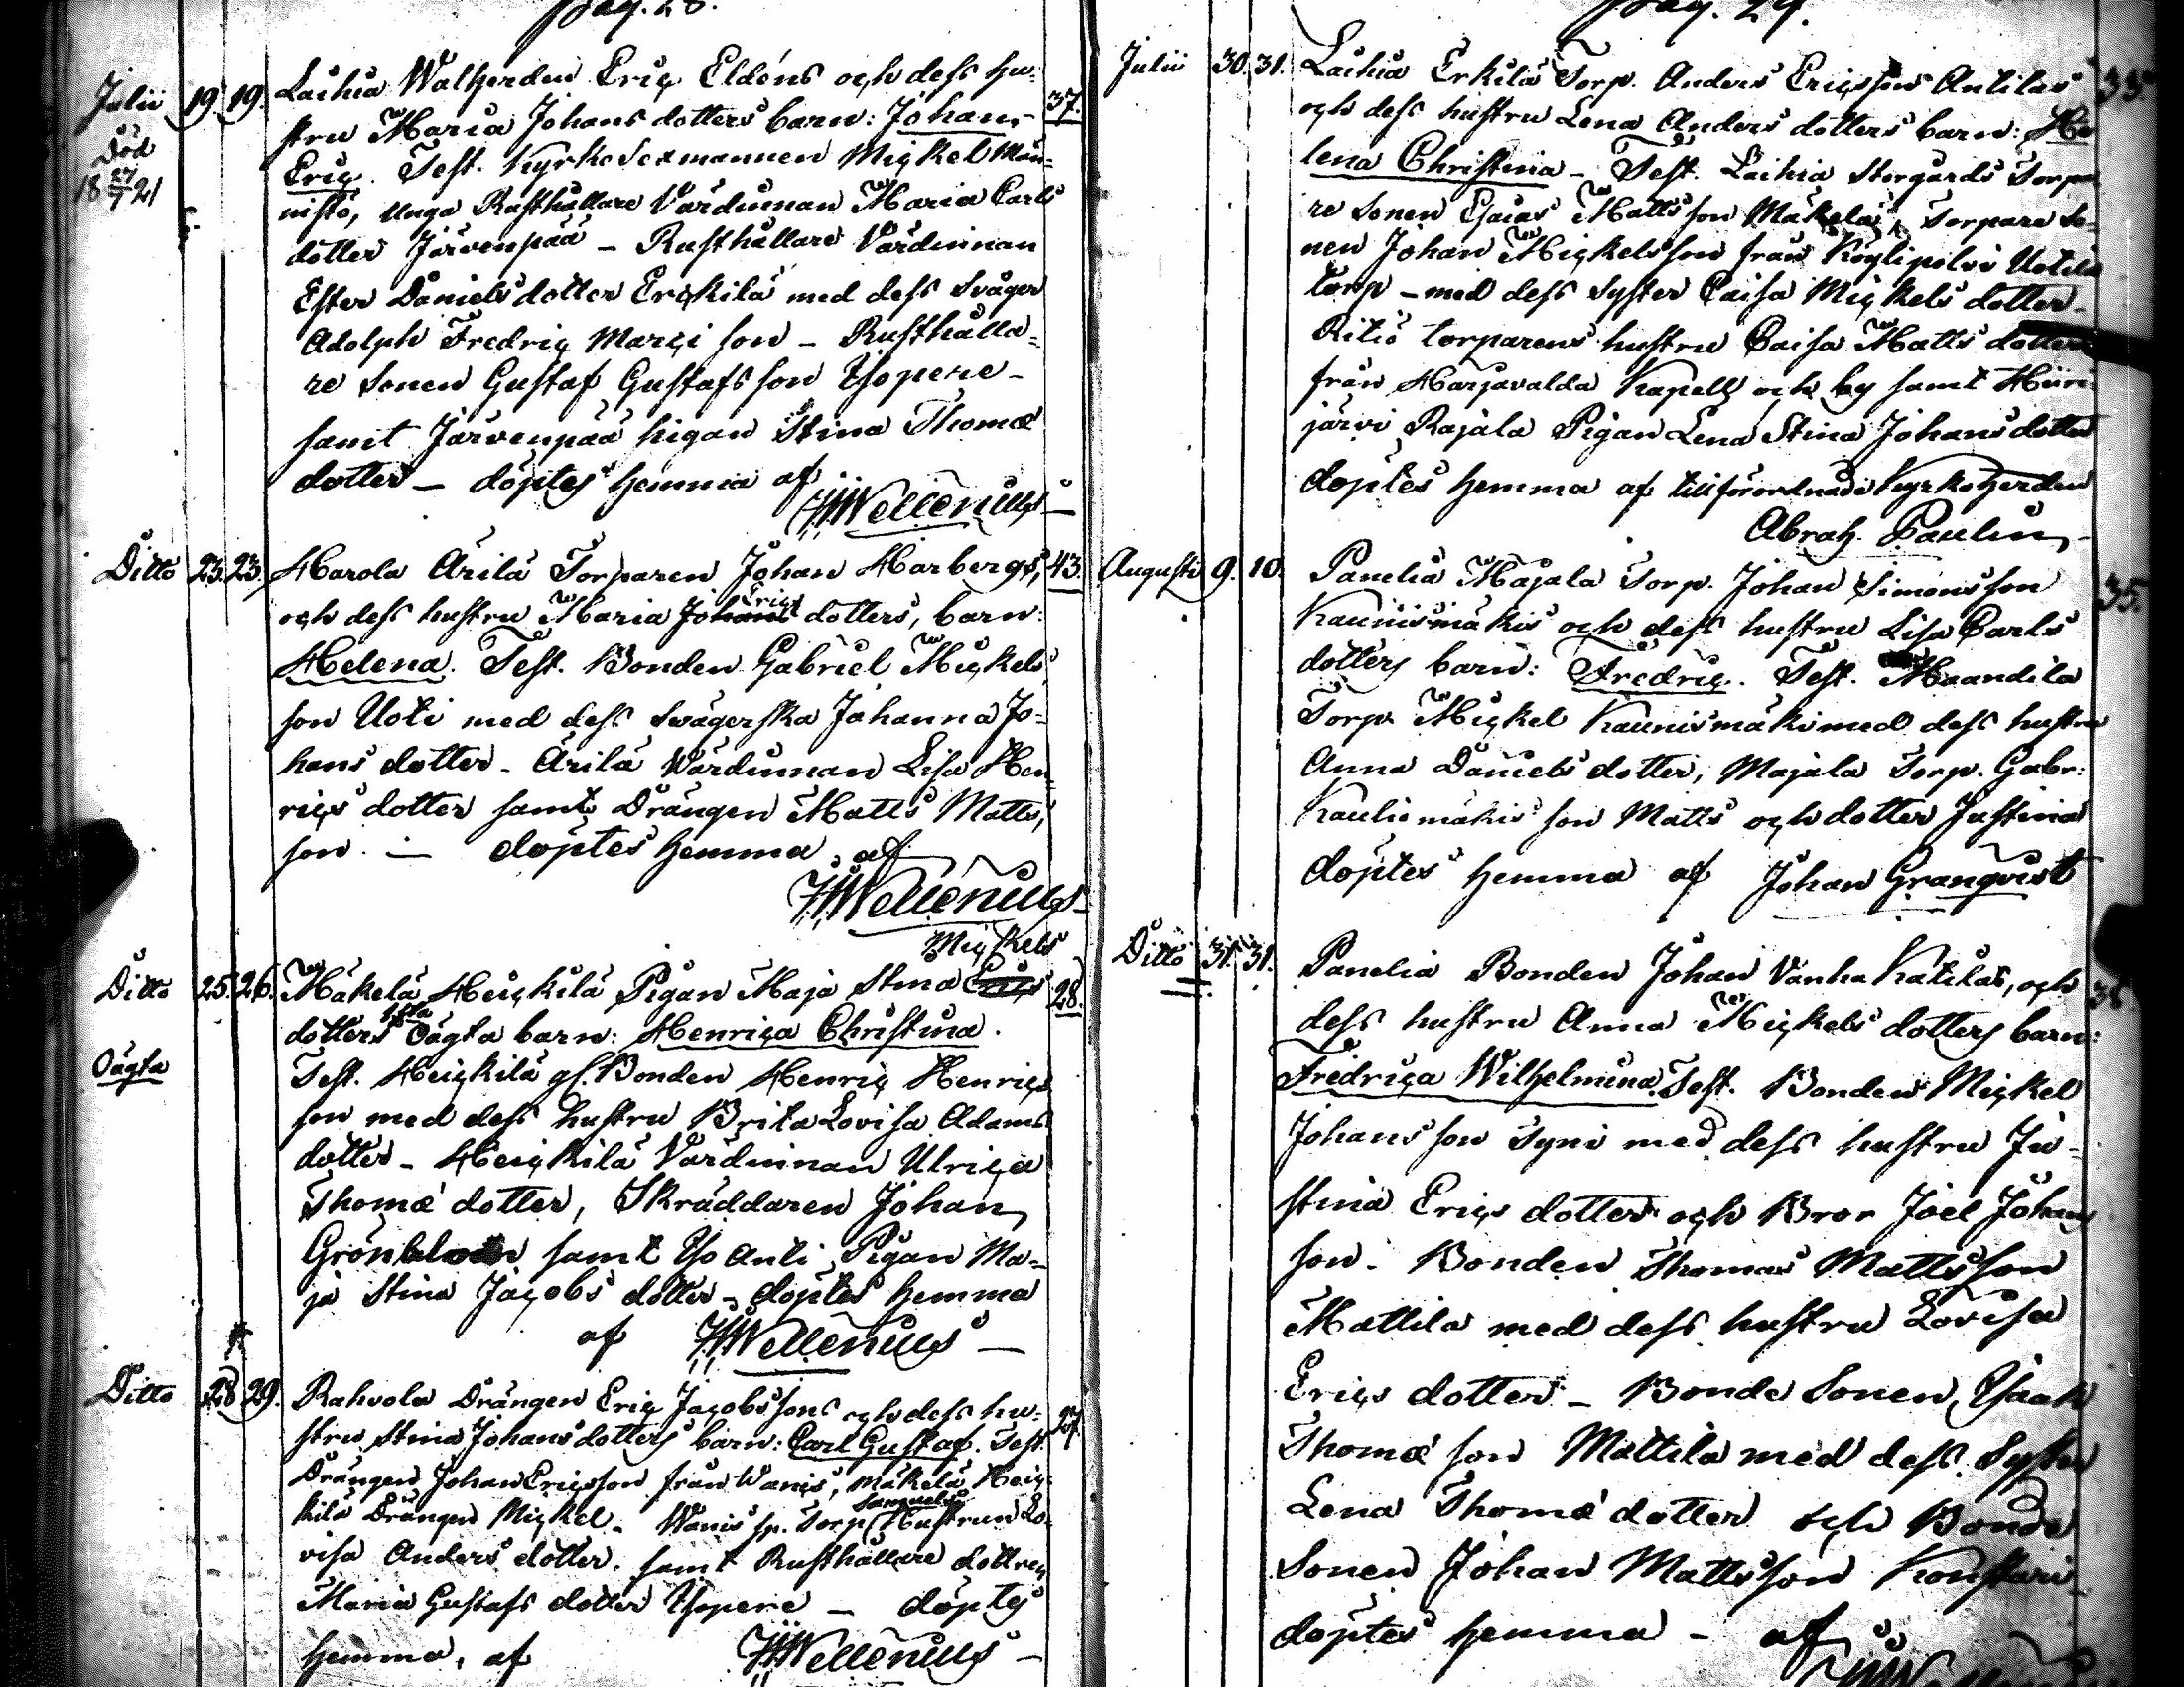 pag. 28.
Julii 19. 19. Laihia Walherden Eriç Eldéns och dess hu-
stru Maria Johans dotters barn: Johan 37.
Död 18 27/7 21
Eriç. Test. Kyrko Sexmannen Miçkel Män-
nistö, Unga Rusthållare Värdinnan Maria Carls
dotter Järvenpää – Rusthållare Värdinnan
Ester Daniels dotter Erçkilä med dess Svåger
Adolph Fredriç Marçi son – Rusthålla-
re Sonen Gustaf Gustafs son Ysopere –
samt Järvenpää pigan Stina Thomæ
dotter – döptes hemma af
Wellenius –
Ditto 23. 23. Harola Ärilä Torparen Johan Harbergs, 43.
och dess hustru Maria Johans Eriçs dotters, barn:
Helena. Test. Bonden Gabriel Miçkels
son Uoti med dess Svägerska Johanna Jo-
hans dotter – Ärilä Wärdinnan Lisa Hen-
riçs dotter samt Drängen Matts Matts,
son. – döptes hemma, af
Wellenius –
Miçkels
Ditto 25. 26. Mäkelä Heiçkilä Pigan Maja Stina 28.
dotters 1sta Oägta barn: Henriça Christina.
Oägta
Test. Heiçkilä gl. Bonden Henriç Henriçs
son med dess hustru Brita Lovisa Adams
dotter – Heiçkilä Värdinnan Ulriça
Thomæ dotter, Skräddaren Johan
Grönblom samt Yso Anti Pigan Ma-
ja Stina Jaçobs dotter – döptes hemma
af Wellenius –
Ditto 28 29. Rahvola Drängen Eriç Jaçobs sons och dess hu- 27.
stru Stina Johans dotters barn: Carl Gustaf. Test.
Drängen Johan Eriçsson från Wanis, Mäkelä Heiç-
kilä Drängen Miçkel – Wanis sp. Torp. Samuels Hustrun Lo-
visa Anders dotter. samt Rusthållare dottren
Maria Gustafs dotter Ysopere – döptes
hemma, af Wellenius –
pag. 29.
Julii 30. 31. Laihia Erkilä Torp. Anders Eriçssons Antilas 35.
och dess hustru Lena Anders dotters barn: He
lena Christina – Test. Laihia Storgårds Torpa
re Sonen Esaias Matts son Mäkelä, Torpare So-
nen Johan Miçkelsson från Köylipolvi Uotila
torp – med dess Syster Caisa Miçkels dotter –
Ritiö torparens hustru Caisa Matts dotter
från Harjavalda Kapell och by samt Hiiri-
järvi Rajala Pigan Lena Stina Johans dotter
döptes hemma af tillförordnade Kyrkoherden
Abrah. Paulin,
Augusti 9. 10. Panelia Majala Torp. Johan Simonsson 35.
Kaunismäkis och dess hustru Lisa Carls
dotters barn: Fredriç. Test. Maandila
Torp. Miçkel Kaunismäki med dess hustru
Anna Daniels dotter, Majala Torp. Gabr:
Kauliomäkis son Matts och dotter Justina
döptes hemma af Johan Granqvist
Ditto 31. 31. Panelia Bonden Johan Vanha Katilas, och 38
dess hustru Anna Miçkels dotters barn:
Fredriça Wilhelmina. Test. Bonden Miçkel
Johans son Syni med dess hustru Ju-
stina Eriçs dotter och Bror Joel Johans
son. Bonden Thomas Mattsson
Mattila med dess hustru Lovisa
Eriçs dotter – Bonde Sonen, Ysaak
Thomæ son Mattila med dess Syster
Lena Thomæ dotter och Bonde
Sonen Johan Mattsson Konstari –
döptes hemma – af